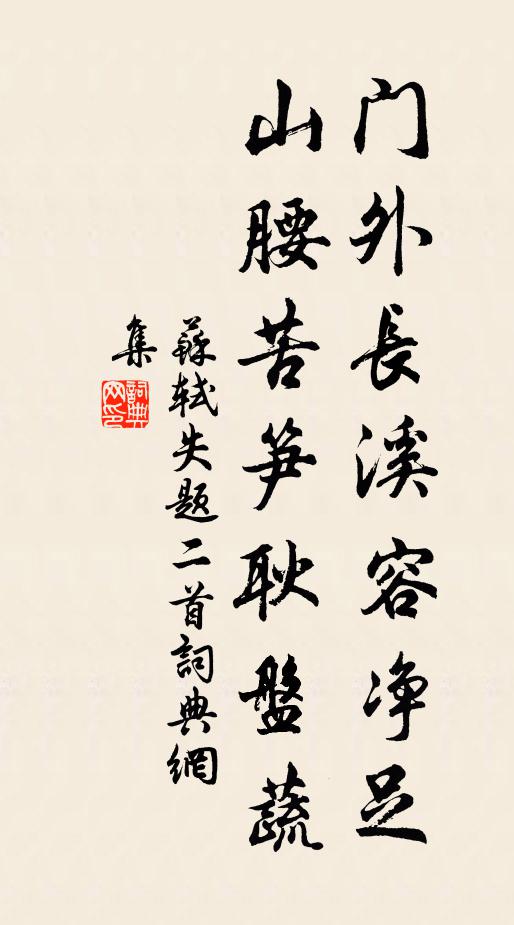 门外長溪容净足
山腰苦笋耿盤蔬
蘇軾失题二首詞典網
集
詞典
网印